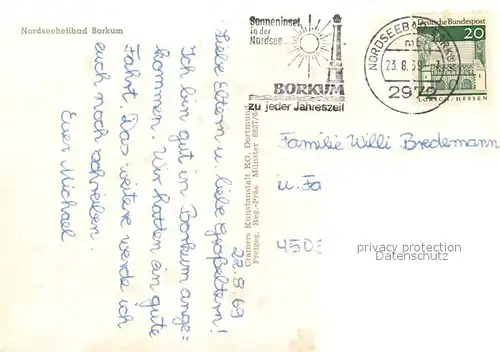 Nordseeheilbad Borkum
Sonneninsel
in der
Nordsee
BORKUM
zu jeder Jahreszeit
NORDSEEBAD BORKUM
23.8.69
2972
Deutsche Bundespost
20
LORSCH/HESSEN
22.8.69
Liebe Eltern u. liebe Großeltern!
Ich bin gut in Borkum ange=
kommen. Wir hatten ein gute
Fahrt. Das weitere werde ich
euch noch schreiben.
Euer Michael
Cramers Kunstanstalt KG. Dortmund
Freigeg. Reg.-Präs. Münster 6827/6
Familie Willi Bredemann
u. Fa
4508
privacy protection
DatenSchutz